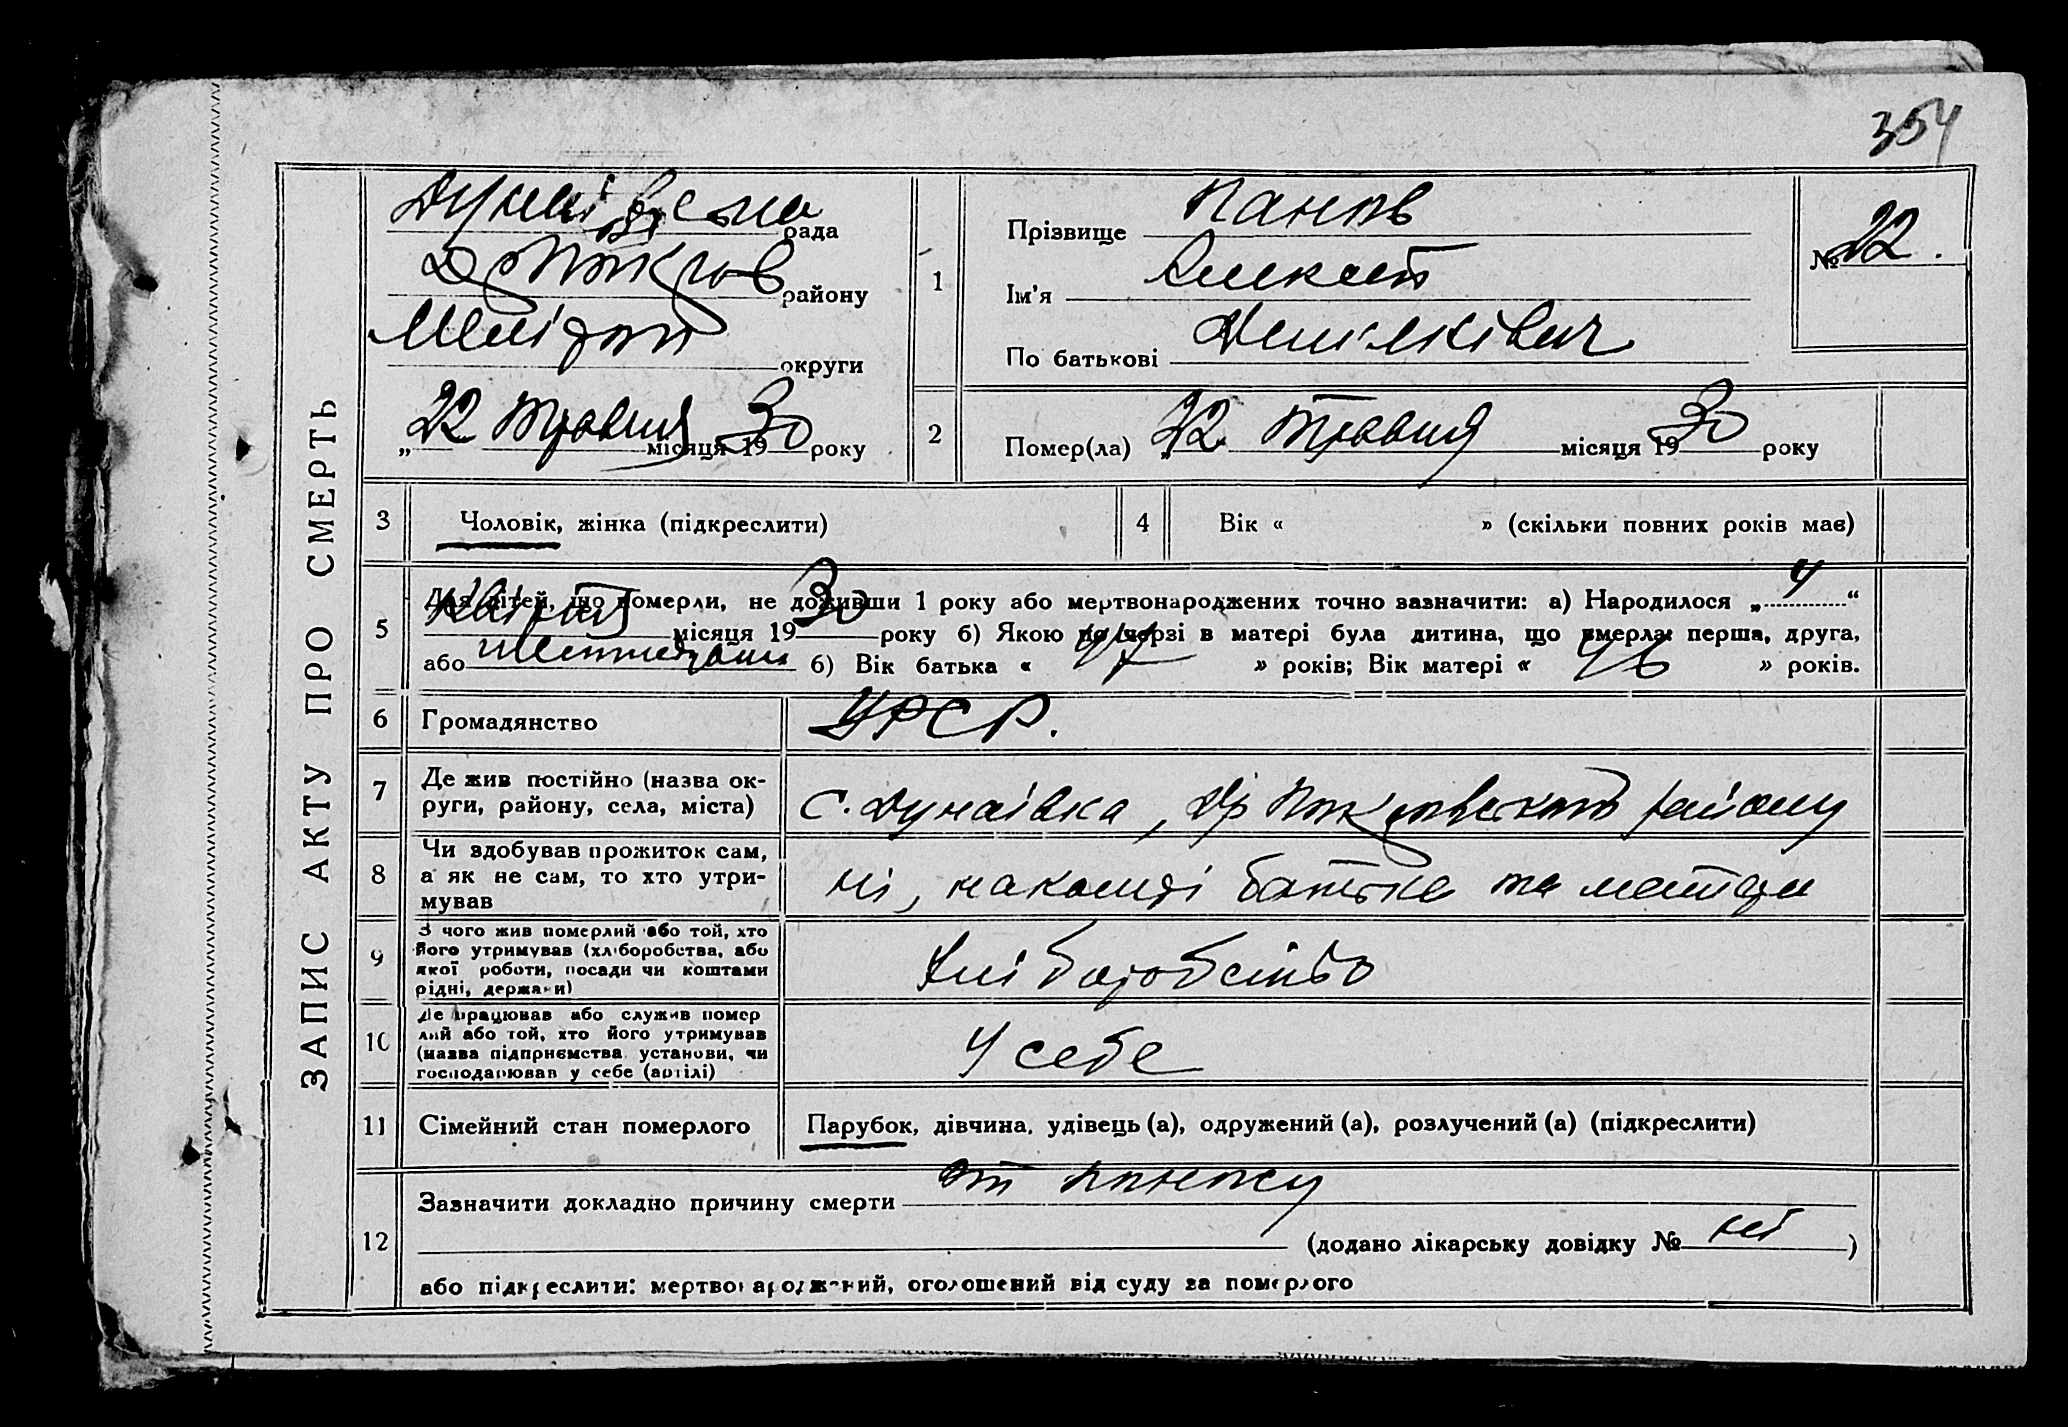 354
ЗАПИС АКТУ ПРО СМЕРТЬ
рада
району
округи
„22 травня місяця 1930 року
1
Прізвище Панов
Ім'я Алексей
По батькові
№ 22.
2
Помер(ла) „22 травня місяця 1930 року
3
Чоловік, жінка (підкреслити)
4
Вік « » (скільки повних років має)
5
Для дітей, що померли, не доживши 1 року або мертвонароджених точно зазначити: а) Народилося „4“
квітня місяця 1930 року б) Якою по черзі в матері була дитина, що вмерла: перша, друга,
або б) Вік батька « 47 » років; Вік матері « 46 » років.
6
Громадянство УРСР.
7
Де жив постійно (назва ок-
руги, району, села, міста)
с. Дунаівка, Др Покровского району
8
Чи здобував прожиток сам,
а як не сам, то хто утри-
мував
ні, на кошті батька та матери
9
З чого жив померлий або той, хто
його утримував (хліборобства, або
якої роботи, посади чи коштами
рідні, держави)
Хліборобство
10
Де працював або служив помер
лий або той, хто його утримував
(назва підприємства, установи, чи
господарював у себе (артілі)
У себе
11
Сімейний стан померлого
Парубок, дівчина, удівець (а), одружений (а), розлучений (а) (підкреслити)
12
Зазначити докладно причину смерти от поносу
(додано лікарську довідку № ні)
або підкреслити: мертвонароджений, оголошений від суду за померлого